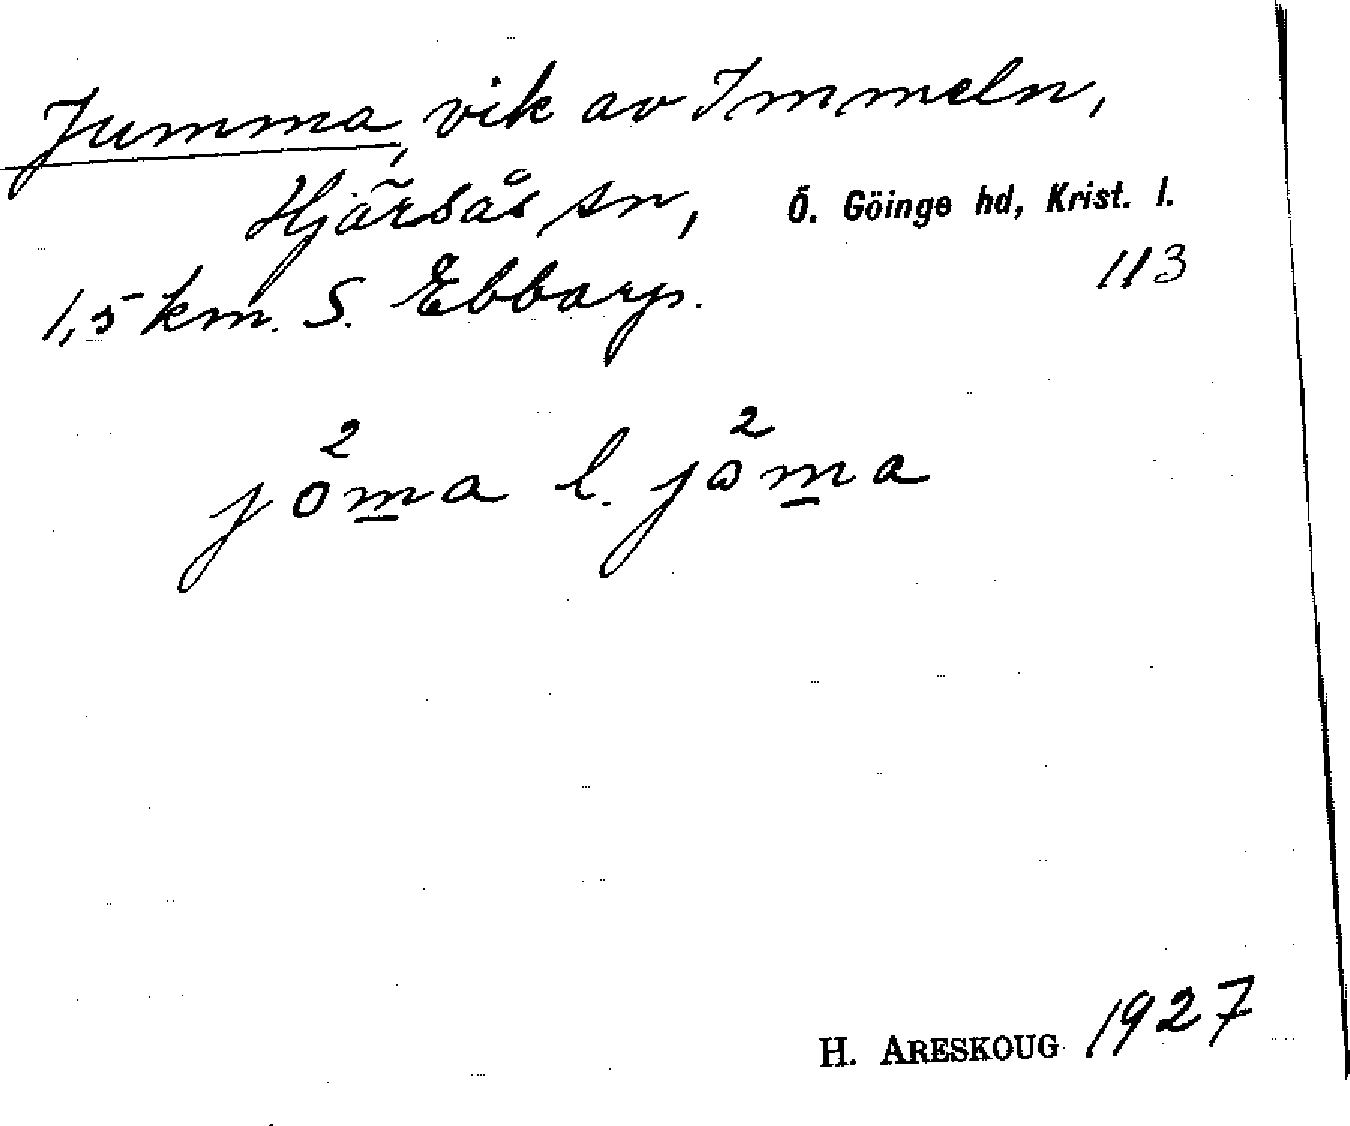 Jumma, vik av Immeln,
Hjärsås sn, Ö. Göinge hd, Krist. l.
113
1,5 km. S. Ebbarp.
jo²m̲a l. jɷ²m̲a
H. ARESKOUG 1927